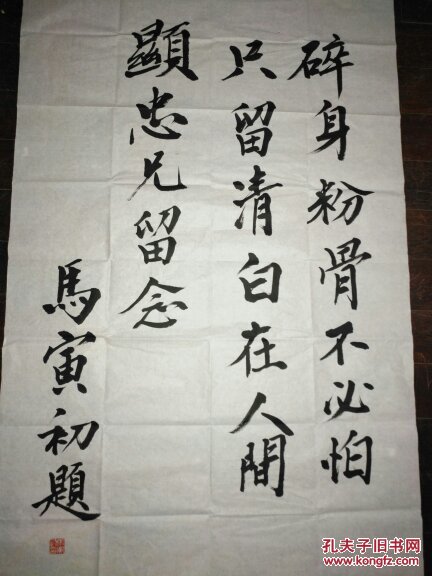 碎身粉骨不必怕
只留清白在人間
顯忠兄留念
馬寅初題
孔夫子旧书网
kongfz.com